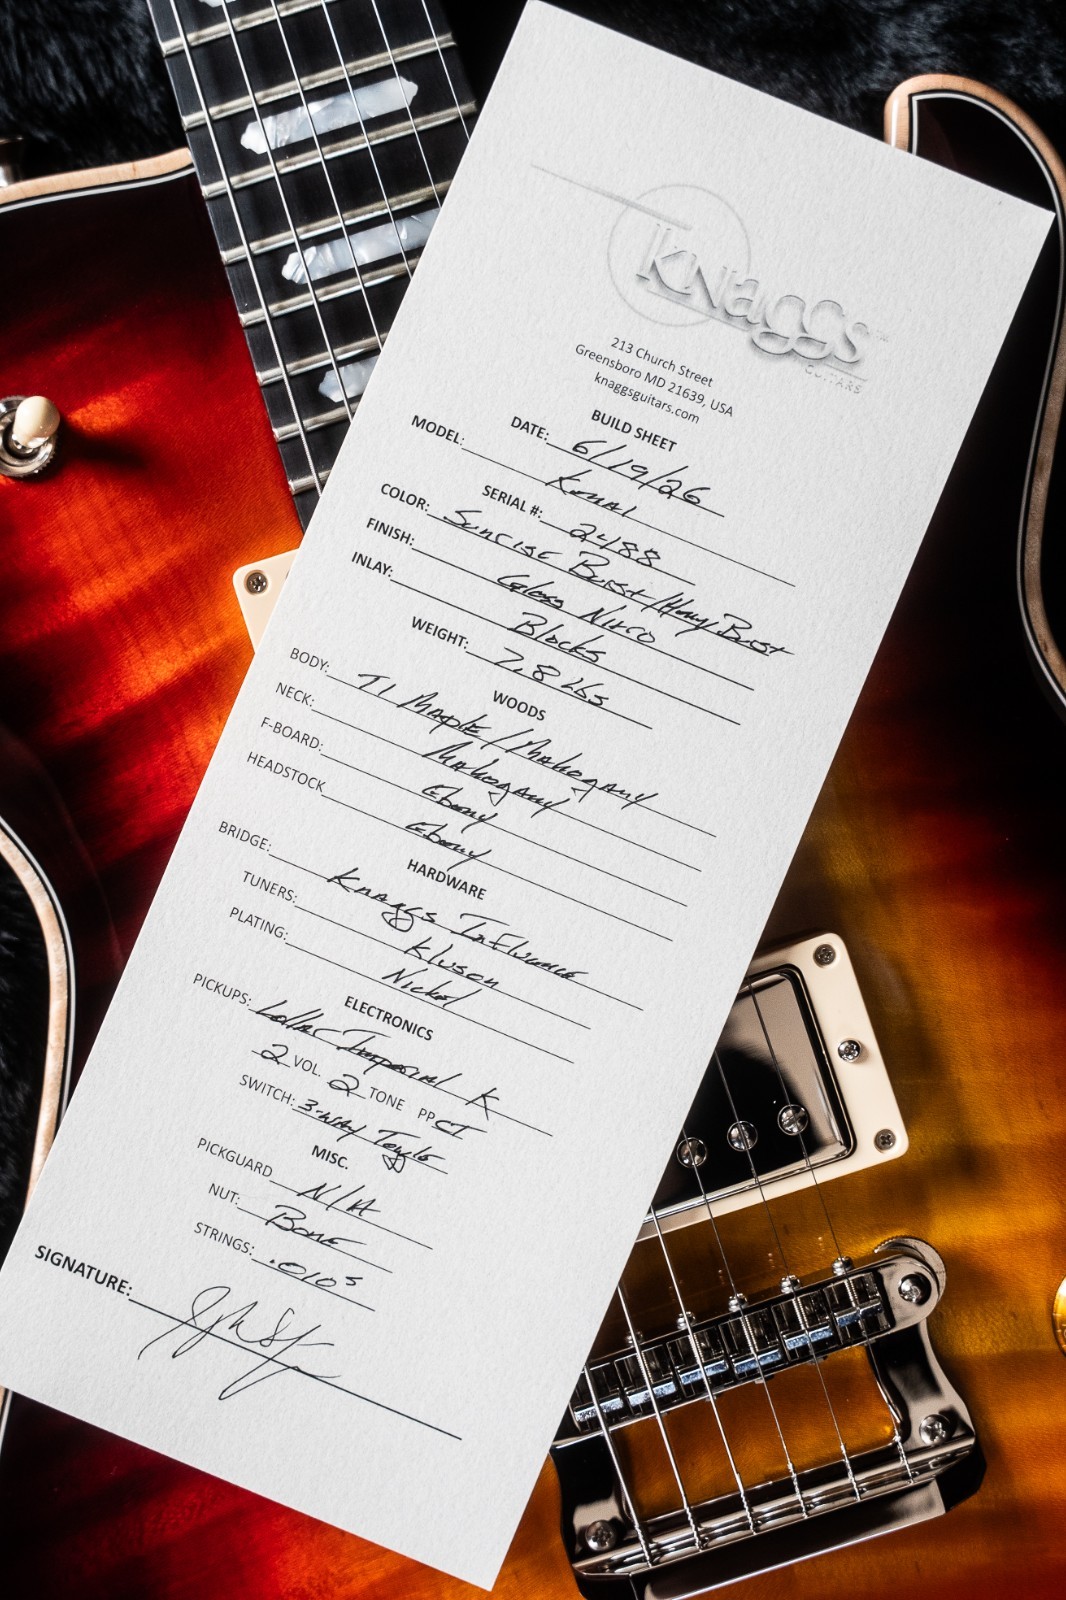 Knaggs
GUITARS
213 Church Street
Greensboro MD 21639, USA
knaggsguitars.com
BUILD SHEET
DATE: 6/19/26
MODEL: Kenai
SERIAL #: 2488
COLOR: Sunrise Burst/Honey Burst
FINISH: Gloss Nitro
INLAY: Blocks
WEIGHT: 7.8 Lbs
WOODS
BODY: T1 Maple/Mahogany
NECK: Mahogany
F-BOARD: Ebony
HEADSTOCK Ebony
HARDWARE
BRIDGE: Knaggs Influence
TUNERS: Kluson
PLATING: Nickel
ELECTRONICS
PICKUPS: Lollar Imperial K
2 VOL. 2 TONE PP CT
SWITCH: 3-way Toggle
MISC.
PICKGUARD N/A
NUT: Bone
STRINGS: .010s
SIGNATURE: